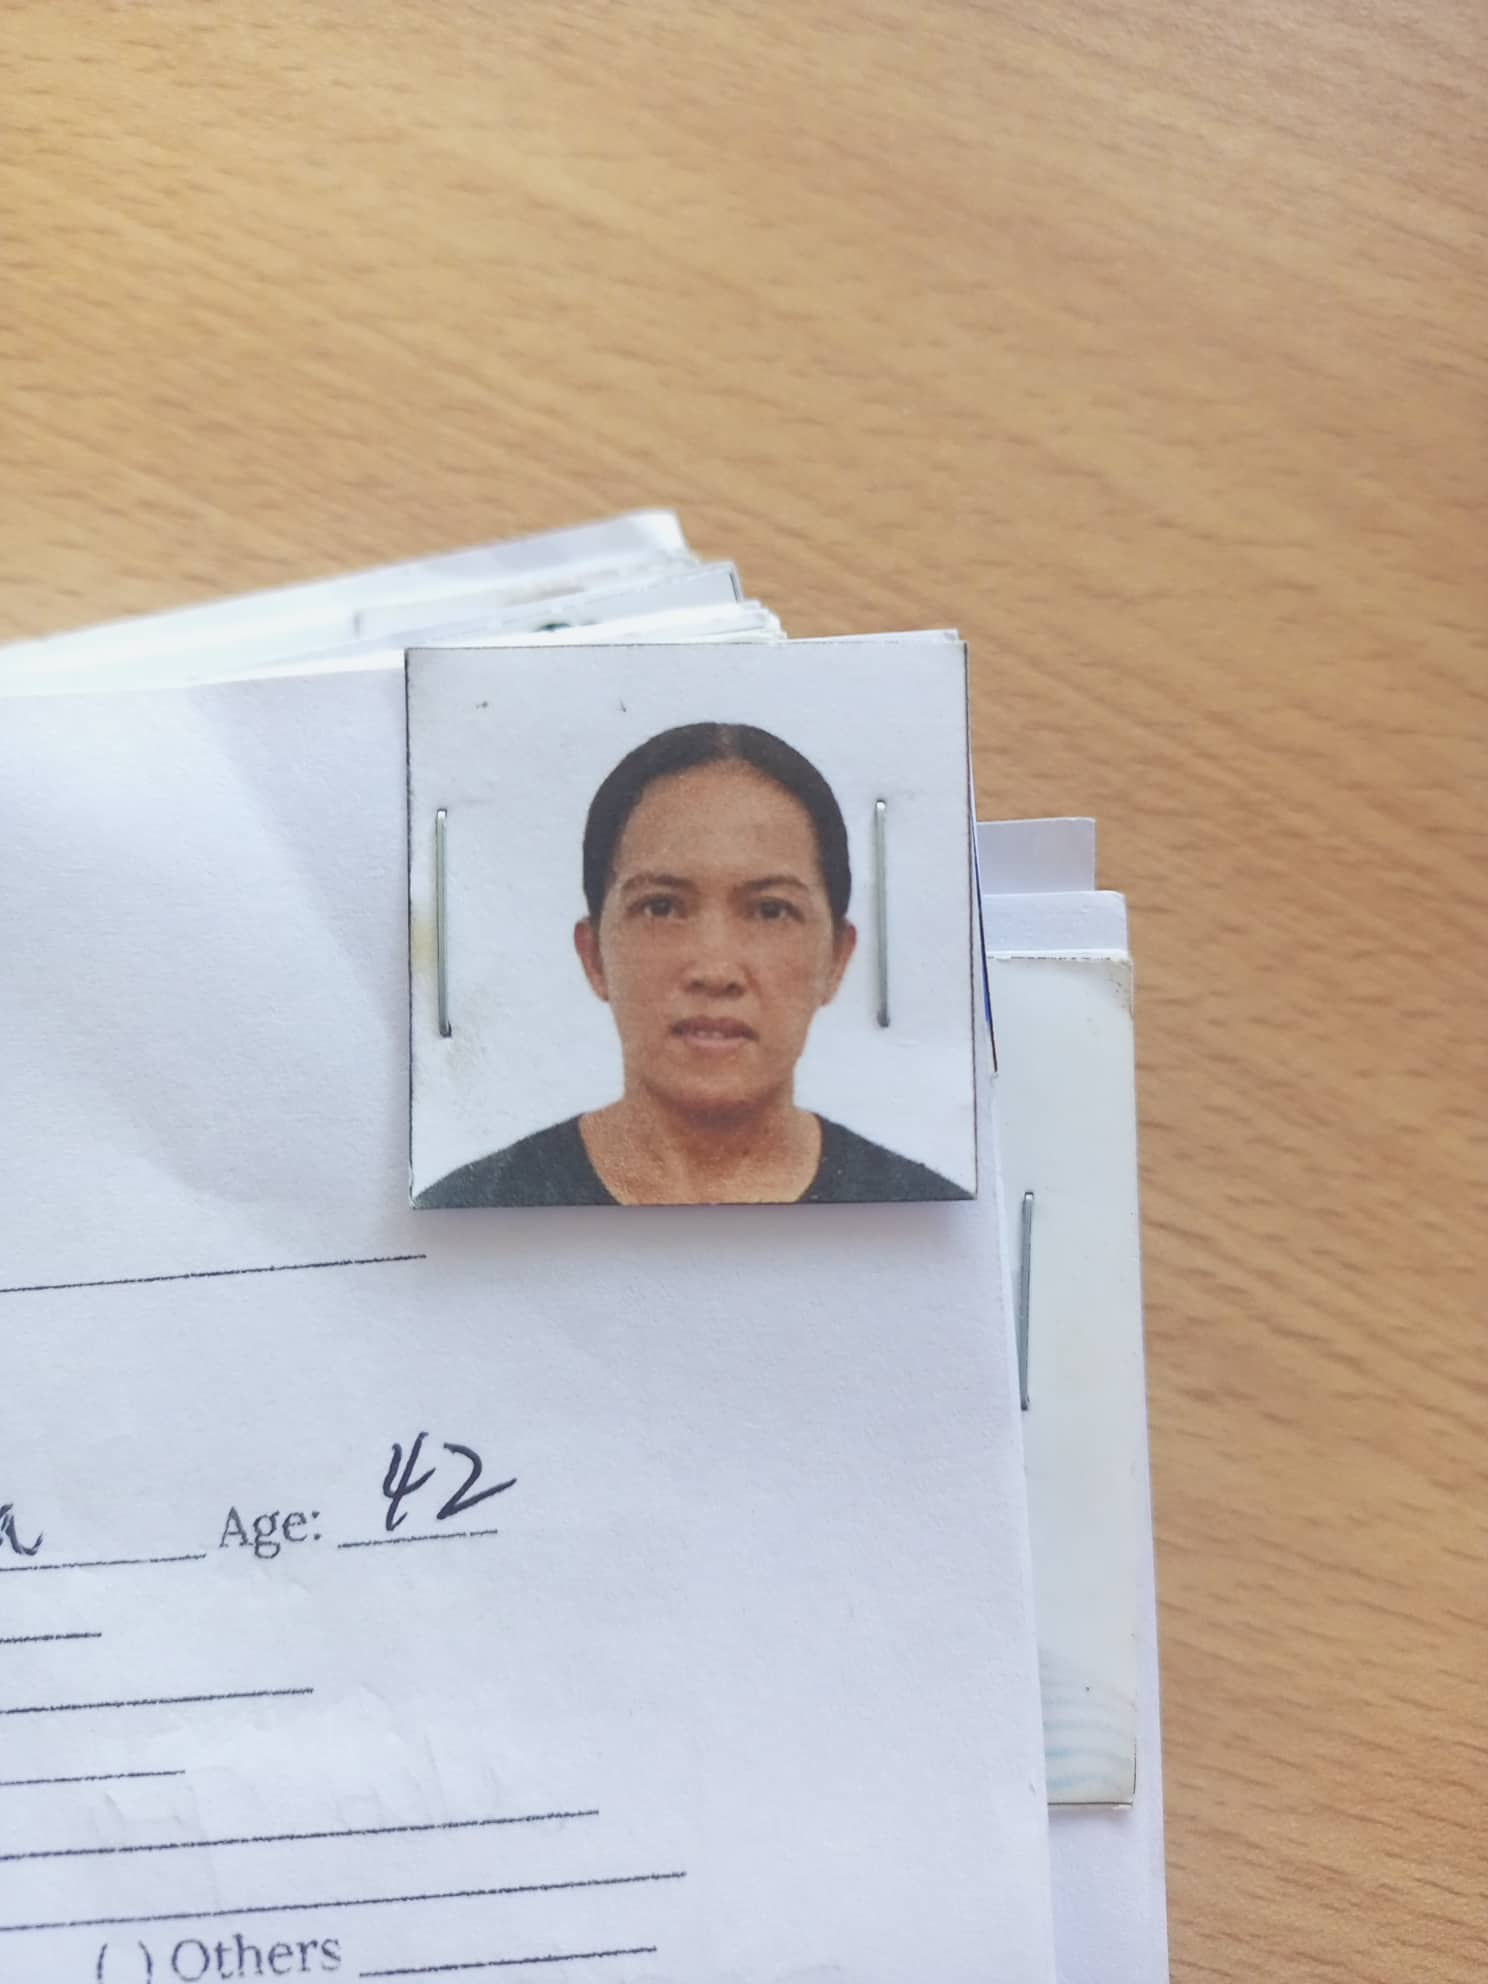 Age: 42
( ) Others